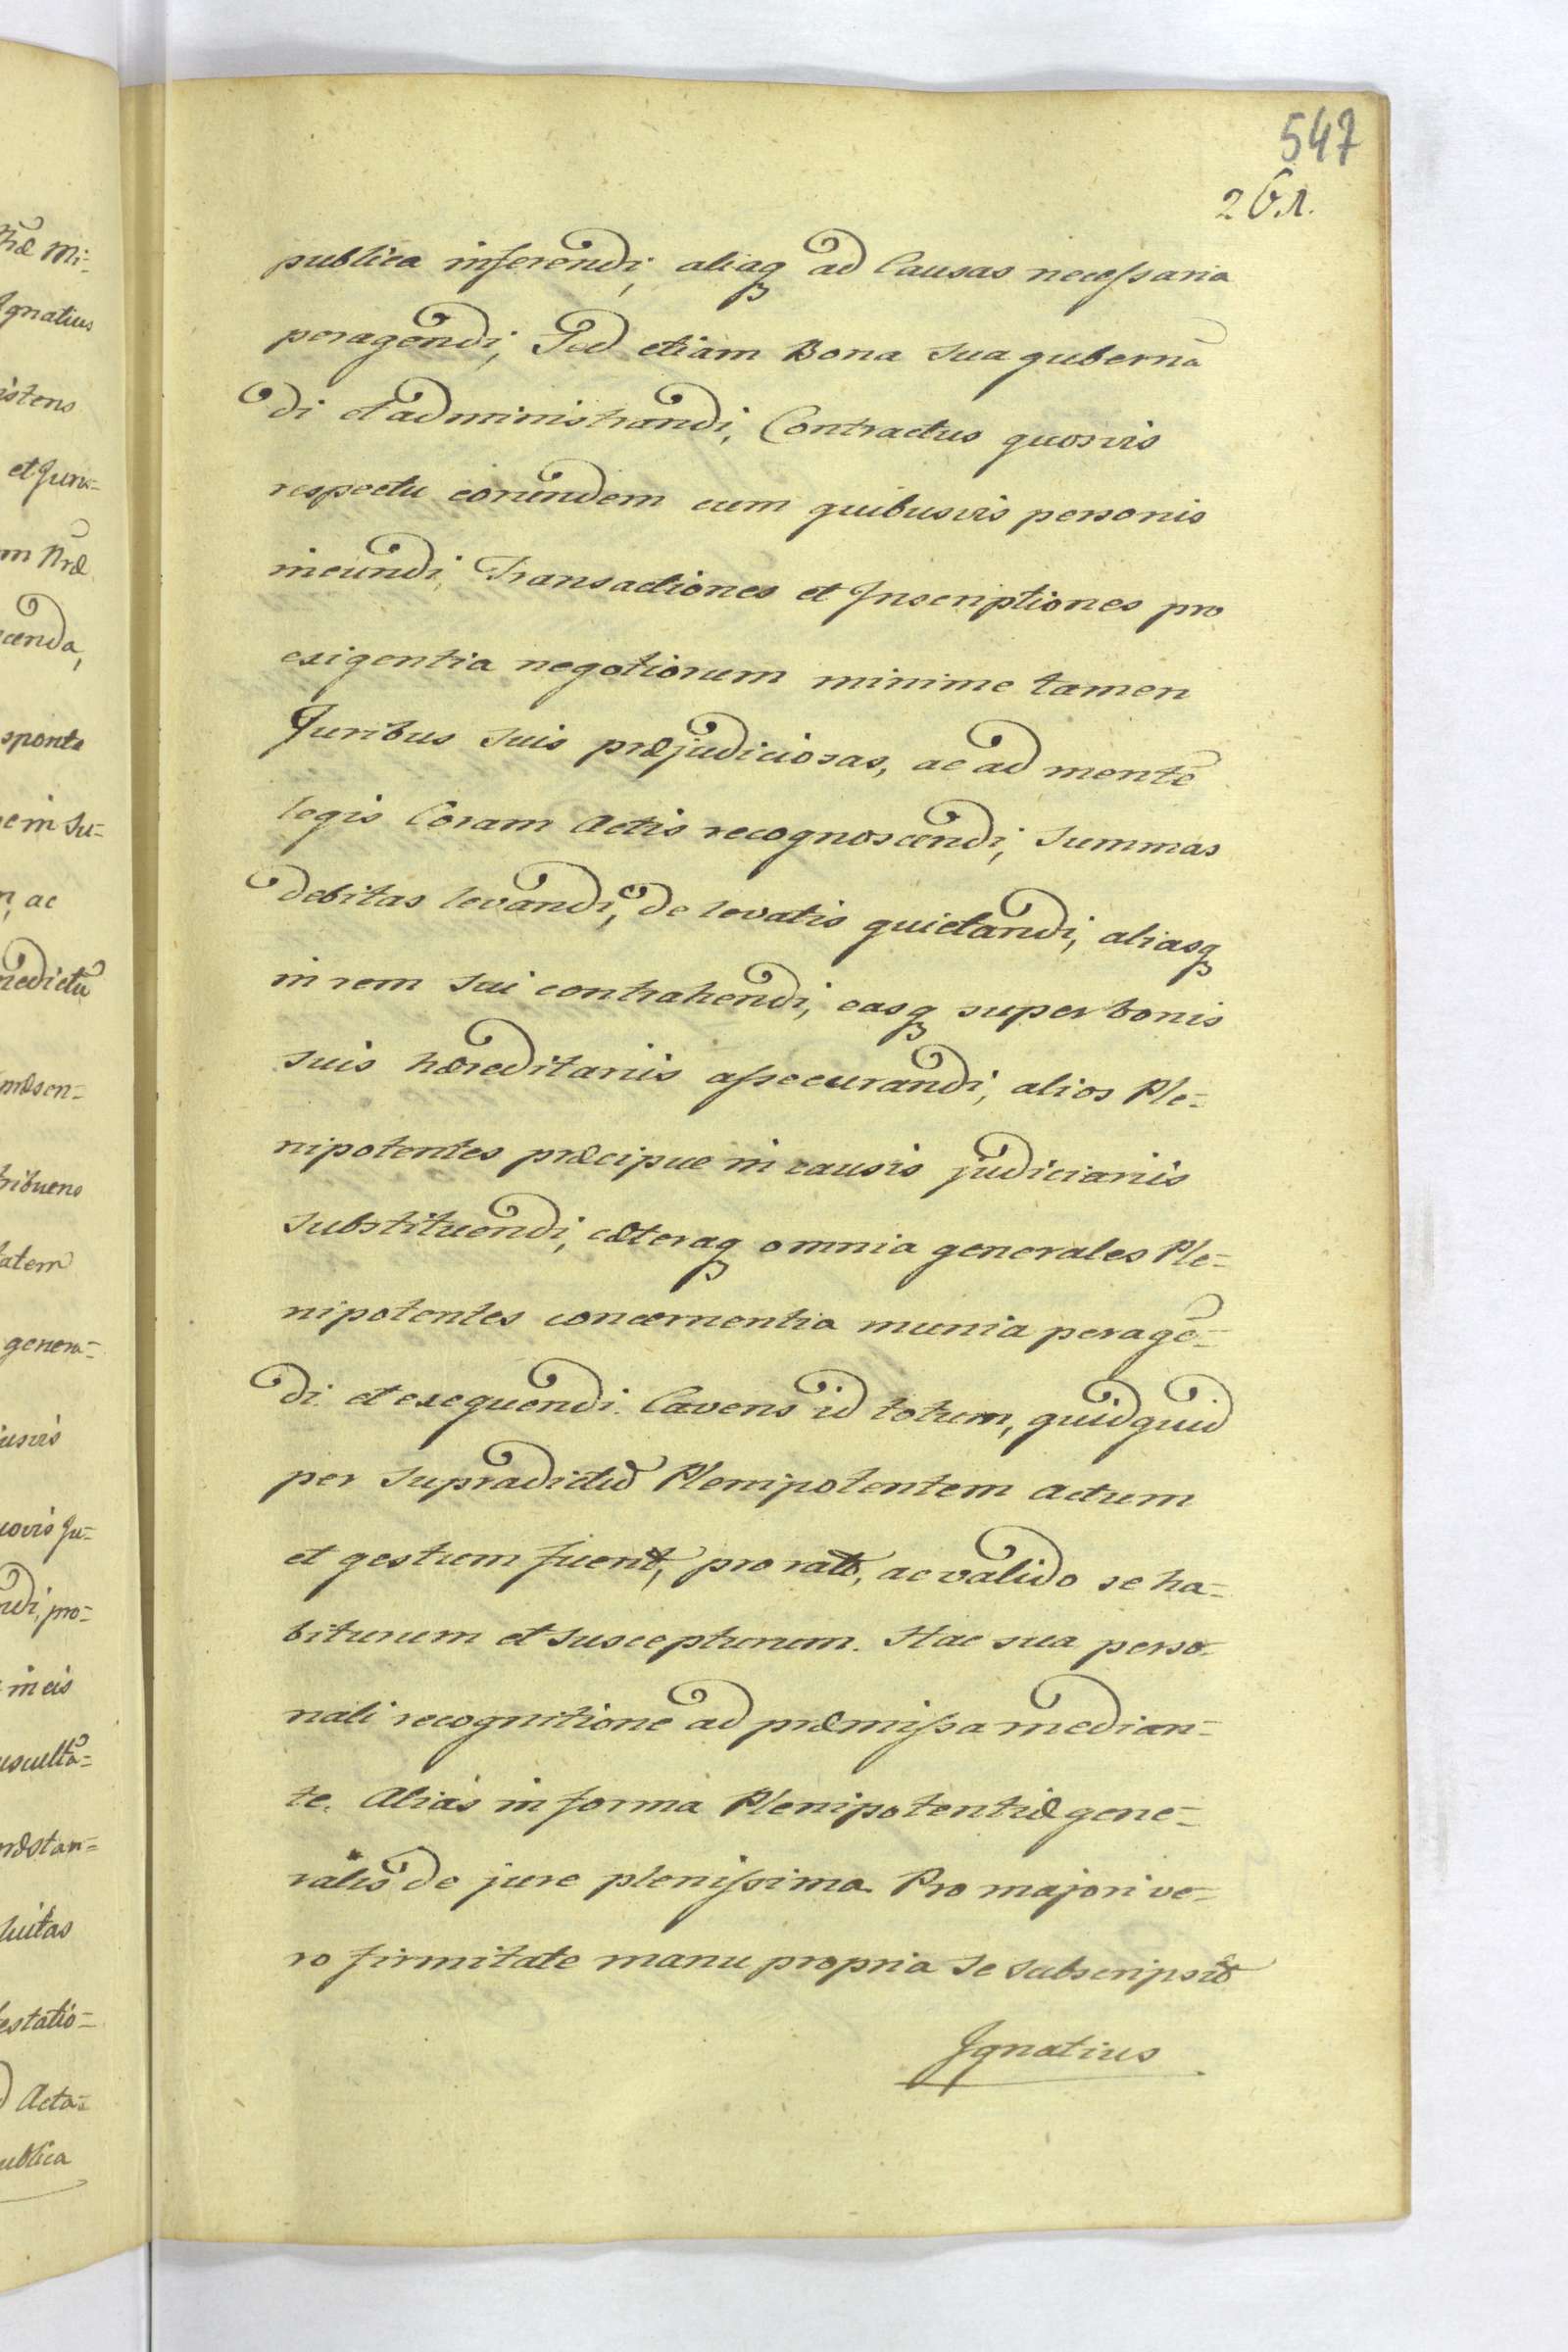 547
2 б.л.
publica inferendi, aliaq ad Causas necessaria
peragendi, Sed etiam Bona sua gubernā
di et administrandi, Contractus quosvis
respectu eorundem cum quibusvis personis
ineundi, Transactiones et Inscriptiones pro
exigentia negotiorum minime tamen
Juribus suis præjudiciosas, ac ad mentē
legis Coram Actis recognoscendi, summas
debitas levandi, de levatis quietandi, aliasq
in rem sui contrahendi, easq super bonis
suis hæreditariis assecurandi, alios Ple-
nipotentes præcipue in causis judiciariis
substituendi, cæteraq omnia generales Ple-
nipotentes concernentia munia peragē-
di et exequendi. Cavens id totum, quidquid
per supradictū Plenipotentem actum
et gestum fuerit, pro rato, ac valido se ha-
biturum et suscepturum. Hac sua perso-
nali recognitione ad præmissa median-
te. Alias in forma Plenipotentiæ gene-
ralis de jure plenissima. Pro majori ve-
ro firmitate manu propria se subscripsit
Ignatius
Mi-
Ignatius
istens
et Juris-
m Nræ
cenda,
sponte
e in su-
ac
nedictū
præsen-
tribuens
tatem
genera-
usvis
uovis Ju-
ndi, pro-
in eis
usculta-
ræstan-
luitas
estatio-
Acta-
ublica